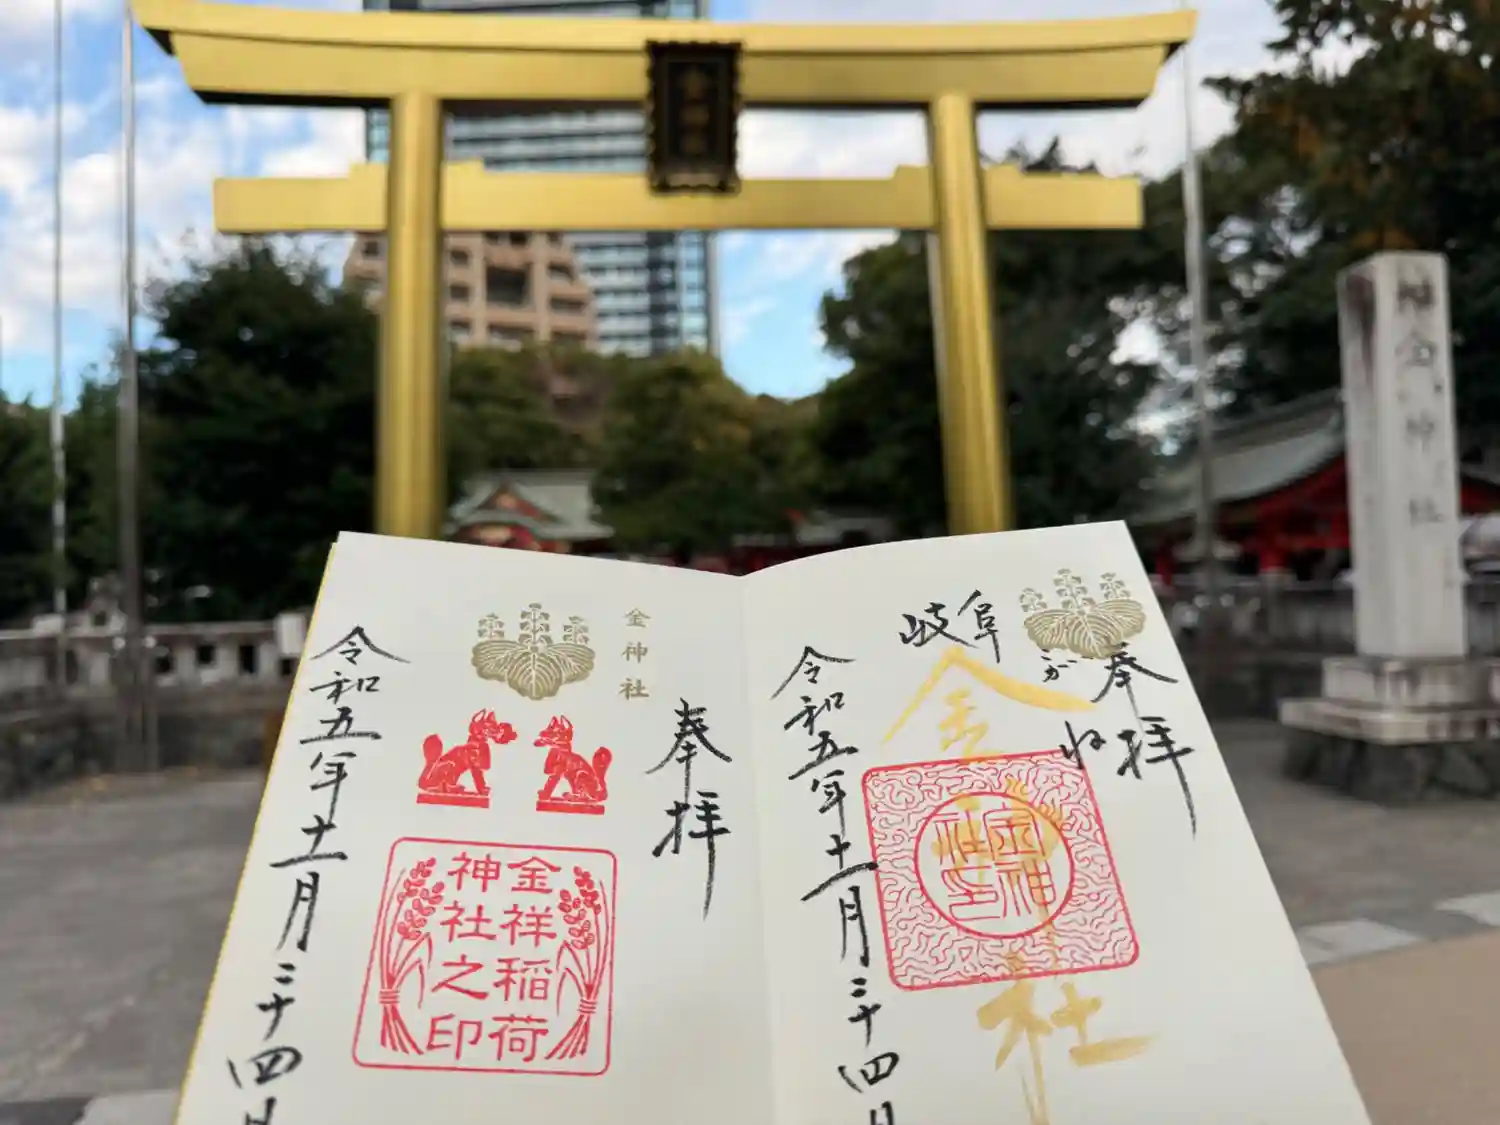 金神社
金神社
奉拝
岐阜
金神社
金神社印
令和五年十一月二十四日
金神社
奉拝
金祥稲荷
神社之印
令和五年十一月二十四日